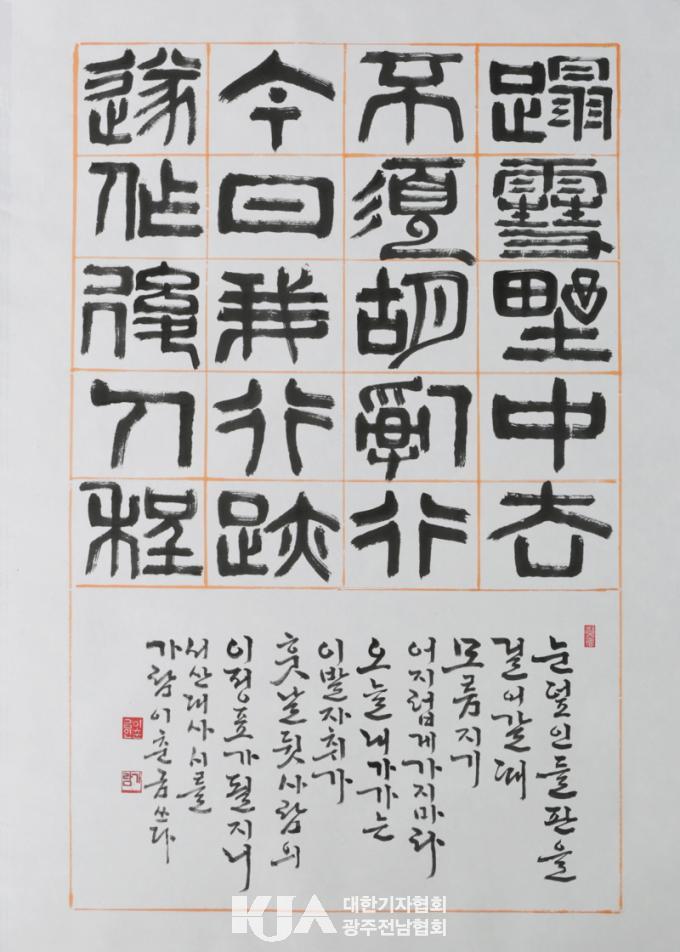 蹋雪野中去
不須胡亂行
今日我行跡
遂作後人程
눈덮인들판을
걸어갈때
모름지기
어지럽게가지마라
오늘내가가는
이발자취가
훗날뒷사람의
이정표가될지니
서산대사시를
가람이춘금쓰다
가람
KJA 대한기자협회
광주전남협회